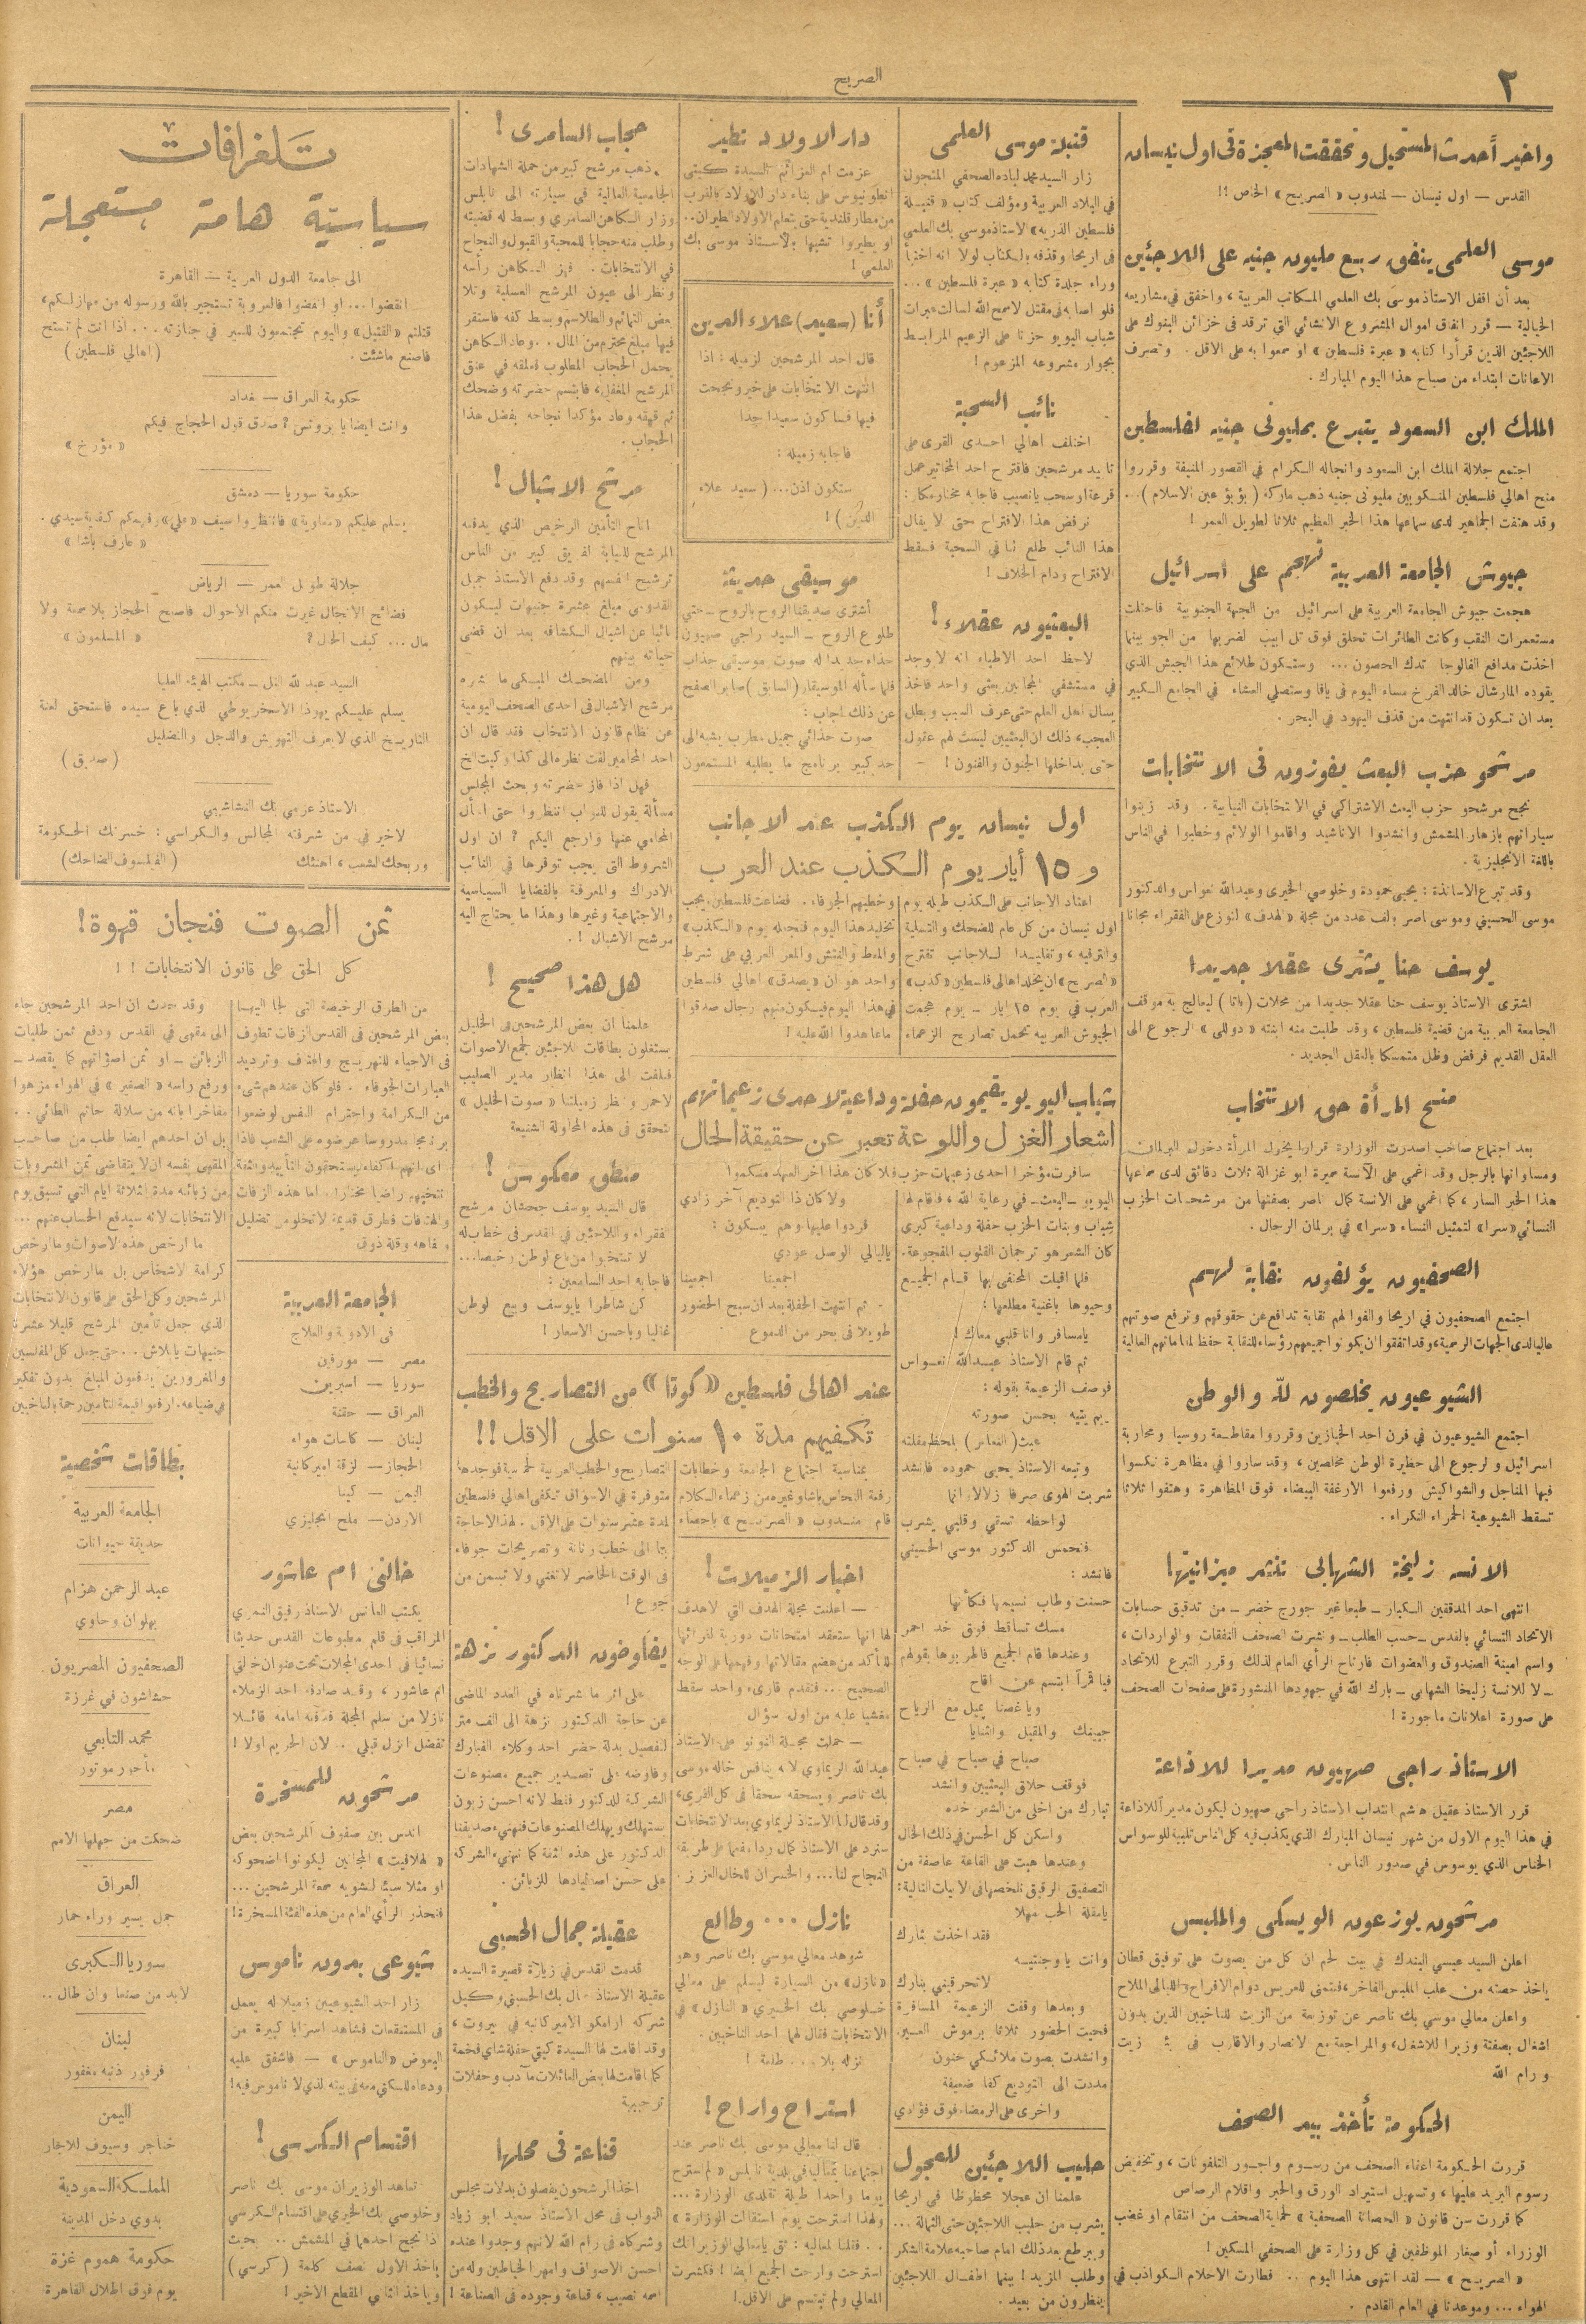 ٢
الصريح
واخيراً حدث المستحيل وتحققت المعجزة فى اول نيسان
القدس — اول نيسان — لمندوب « الصريح » الخاص !!
موسى العلمى ينفق ربيع مليون جنيه على اللاجئين
بعد أن اقفل الاستاذ موسى بك العلمي المكاتب العربية ، واخفق في مشاريعه
الخيالية — قرر انفاق اموال المشروع الانشائي التي ترقد فى خزائن البنوك على
اللاجئين الذين قرأوا كتابه « عبرة فلسطين » او سمعوا به على الاقل . وتصرف
الاعانات ابتداء من صباح هذا اليوم المبارك .
الملك ابن السعود يتبرع بمليونى جنيه لفلسطين
اجتمع جلالة الملك ابن السعود وانجاله الكرام في القصور المنيفة وقرروا
منح اهالي فلسطين المنكوبين مليونى جنيه ذهب ماركة ( بؤبؤ عين الاسلام ) ...
وقد هتفت الجماهير لدى سماعها هذا الخبر العظيم ثلاثا لطويل العمر !
جيوش الجامعة العربية تهجم على اسرائيل
هجمت جيوش الجامعة العربية على اسرائيل من الجهة الجنوبية فاحتلت
مستعمرات النقب وكانت الطائرات تحلق فوق تل ابيب لضربها من الجو بينما
اخذت مدافع الفالوجا تدك الحصون ... وستكون طلائع هذا الجيش الذي
يقوده المارشال خالد الفرخ مساء اليوم فى يافا وستصلي العشاء في الجامع الكبير
بعد ان تكون قد انتهت من قذف اليهود في البحر .
مرشحو حزب البعث يفوزون فى الانتخابات
نجح مرشحو حزب البعث الاشتراكي في الانتخابات النيابية . وقد زينوا
سياراتهم بازهار المشمش وانشدوا الاناشيد واقاموا الولائم وخطبوا في الناس
باللغة الانجليزية .
وقد تبرع الاساتذة : يحيى حمودة وخلوصي الخيرى وعبدالله نعواس والدكتور
موسى الحسيني وموسى ناصر بالف عدد من مجلة « الهدف » لتوزع على الفقراء مجانا
يوسف حنا يشترى عقلا جديدا
اشترى الاستاذ يوسف حنا عقلا جديدا من محلات ( باتا ) ليعالج به موقف
الجامعة العربية من قضية فلسطين ، وقد طلبت منه ابنته « دوللى » الرجوع الى
العقل القديم فرفض وظل متمسكا بالعقل الجديد .
منح المرأة حق الانتخاب
بعد اجتماع صاخب اصدرت الوزارة قرارا يخول المرأة دخول البرلمان
ومساواتها بالرجل وقد اغمي على الآنسة سميرة ابو غزالة ثلاث دقائق لدى سماعها
هذا الخبر السار ، كما اغمي على الانسة كمال ناصر بصفتها من مرشحات الحزب
النسائي « سرا » لتمثيل النساء « سرا » في برلمان الرجال .
الصحفيون يؤلفون نقابة لهم
اجتمع الصحفيون في اريحا والفوا لهم نقابة تدافع عن حقوقهم وترفع صوتهم
عاليا لدى الجهات الرسمية ، وقد اتفقوا ان يكونوا جميعهم رؤساء للنقابة حفظا لمقاماتهم العالية
الشيوعيون يخلصون للّه والوطن
اجتمع الشيوعيون في فرن احد الخبازين وقرروا مقاطعة روسيا ومحاربة
اسرائيل والرجوع الى حظيرة الوطن مخلصين ، وقد ساروا في مظاهرة نكسوا
فيها المناجل والشواكيش ورفعوا الارغفة البيضاء فوق المظاهرة وهتفوا ثلاثا
تسقط الشيوعية الحمراء النكراء .
الانسه زليخة الشهابى تنشر ميزانيتها
انتهى احد المدققين الكبار — طبعا غير جورج خضر — من تدقيق حسابات
الاتحاد النسائي بالقدس — حسب الطلب — ونشرت الصحف النفقات والواردات ،
واسم امينة الصندوق والعضوات فارتاح الرأي العام لذلك وقرر التبرع للاتحاد
— لا للانسة زليخا الشهابى — بارك الله في جهودها المنشورة على صفحات الصحف
على صورة اعلانات مأجورة !
الاستاذ راجى صهيون مديرا للاذاعة
قرر الاستاذ عقيل هاشم انتداب الاستاذ راجي صهيون ليكون مديرا للاذاعة
في هذا اليوم الاول من شهر نيسان المبارك الذي يكذب فيه كل الناس تلبية للوسواس
الخناس الذي يوسوس في صدور الناس .
مرشحون يوزعون الويسكى والملبس
اعلن السيد عيسى البندك في بيت لحم ان كل من يصوت على توفيق قطان
ياخذ حصته من علب الملبس الفاخر ، فنتمنى للعريس دوام الافراح والليالى الملاح
واعلن معالي موسى بك ناصر عن توزيعه من الزيت للناخبين الذين يدون
اشغال بصفته وزيرا للاشغال ، والمراجعة مع الانصار والاقارب فى بير زيت
ورام الله
الحكومة تأخذ بيد الصحف
قررت الحكومة اعفاء الصحف من رسوم واجور التلفونات ، وتخفيض
رسوم البريد عليها ، وتسهيل استيراد الورق والحبر واقلام الرصاص
كما قررت سن قانون « الحصانة الصحفية » لحماية الصحف من انتقام او غضب
الوزراء أو صغار الموظفين في كل وزارة على الصحفي المسكين !
« الصريح » — لقد انتهى هذا اليوم .. فطارت الاحلام الكواذب في
الهواء ... وموعدنا في العام القادم .
قنبلة موسى العلمى
زار السيد محمد لباده الصحفي المتجول
في البلاد العربية ومؤلف كتاب « قنبلة
فلسطين الذريه » الاستاذ موسي بك العلمي
فى اريحا وقذفه بالكتاب لولا انه اختبأ
وراء جلدة كتابه « عبرة فلسطين » ...
فلو اصابه فى مقتل لا سمح الله لسالت عبرات
شباب البويو حزنا على الزعيم المرابط
بجوار مشروعه المزعوم !
نائب السحبة
اختلف اهالي احدى القرى على
تاييد مرشحين فاقترح احد المخاتير عمل
قرعة او سحب يانصيب فاجابه مختار مكار :
نرفض هذا الاقتراح حتى لا يقال
هذا النائب طلع لنا في السحبة فسقط
الاقتراح ودام الخلاف !
البعثيون عقلاء !
لاحظ احد الاطباء انه لا وجد
في مستشفى المجانين بعثي واحد فاخذ
يسأل اهل العلم حتى عرف السبب وبطل
العجب ، ذلك ان البعثيين ليست لهم عقول
حتى يداخلها الجنون والفنون !
دار الاولاد تطير
عزمت ام العزائم السيدة كيتي
انطونيوس على بناء دار للاولاد بالقرب
من مطار قلنديه حتى تعلم الاولاد الطيران ..
او يطيروا تشبها بالاستاذ موسى بك
العلمي !
أنا (سعيد) علاء الدين
قال احد المرشحين لزميله : اذا
انتهت الانتخابات على خير ونجحت
فيها فساكون سعيدا جدا
فاجابه زميله :
ستكون اذن ... ( سعيد علاء
الدين ) !
موسيقى حديثة
أشترى صديقنا الروح بالروح — حتى
طلوع الروح — السيد راجي صهيون
حذاء جديدا له صوت موسيقى جذاب
فلما سأله الموسيقار ( السابق ) صابر الصفح
عن ذلك اجاب :
صوت حذائي جميل مطرب يشبه الى
حد كبير برنامج ما يطلبه المستمعون
اول نيسان يوم الكذب عند الاجانب
و ١٥ أيار يوم الكذب عند العرب
اعتاد الاجانب على الكذب طيلة يوم
اول نيسان من كل عام للضحك والتسلية
والترفيه ، وتقليدا للاجانب تقترح
« الصريح » ان يخلد اهالى فلسطين « كذب »
العرب في يوم ١٥ ايار — يوم هجمت
الجيوش العربيه تحمل تصاريح الزعماء
وخطبهم الجوفاء . فضاعت فلسطين . يجب
تخليد هذا اليوم فنجعله يوم « الكذب »
والمط والفتش والمعر العربي على شرط
واحد هو ان « يصدق » اهالي فلسطين
في هذا اليوم فيكون منهم رجال صدقوا
ما عاهدوا الله عليه !
شباب البويو يقيمون حفلة وداعية لاحدى زعيماتهم
اشعار الغزل واللوعة تعبر عن حقيقة الحال
سافرت مؤخرا احدى زعيمات حزب
البويو — البعث — في رعاية الله ، فاقام لها
شباب وبنات الحزب حفلة وداعية كبرى
كان الشعر هو ترجمان القلوب المفجوعة .
فلما اقبلت المحتفى بها قام الجميع
وحيوها باغنية مطلعها :
يا مسافر وانا قلبي معاك !
ثم قام الاستاذ عبدالله نعواس
فوصف الزعيمة بقوله :
ريم يتيه بحسن صورته
عبث ( النعاس ) بلحظ مقلته
وتبعه الاستاذ يحيى حموده فانشد
شربت الهوى صرفا زلالا وانما
لواحظه تسقي وقلبي يشرب
فتحمس الدكتور موسى الحسيني
فانشد :
حسنت وطاب نسيمها فكأنها
مسك تساقط فوق خد احمر
وعندها قام الجميع فاطربوها بقولهم
فيا قمرا ابتسم عن اقاح
ويا غصنا يميل مع الرياح
جبينك والمقبل والثنايا
صباح في صباح في صباح
فوقف حلاق البعثيين وانشد
تبارك من اخلى من الشعر خده
واسكن كل الحسن في ذلك الخال
وعندها هبت على القاعة عاصفة من
التصفيق الرقيق نلخصها فى الابيات التالية :
يا مقلة الحب مهلا
فقد اخذت بثارك
وانت يا وجنتيه
لاتحرقيني بنارك
وبعدها وقفت الزعيمة المسافرة
فحيت الحضور ثلاثا برموش العين
وانشدت بصوت ملائكي حنون
مددت الى التوديع كفا ضعيفة
واخرى على الرمضاء فوق فؤادي
فلا كان هذا اخر العهد منكموا
ولا كان ذا التوديع آخر زادي
فردوا عليها وهم يبكون :
ياليالي الوصل عودي
اجمعينا اجمعينا
ثم انتهت الحفلة بعد ان سبح الحضور
طويلا فى بحر من الدموع
حليب اللاجئين للعجول
علمنا ان عجلا محظوظا فى اريحا
يشرب من حليب اللاجئين حتى الثمالة ...
ويبرطع بعد ذلك امام صاحبه علامة الشكر
وطلب المزيد ! بينما اطفال اللاجئين
ينظرون من بعيد .
عند اهالى فلسطين « كوتا » من التصاريح والخطب
تكفيهم مدة ١٠ سنوات على الاقل !!
بمناسبة اجتماع الجامعة وخطابات
رفعة النحاس باشا وغيره من زعماء الكلام
قام مندوب « الصريح » باحصاء
التصاريح والخطب العربية فوجدها
متوفرة في الاسواق تكفى اهالي فلسطين
لمدة عشر سنوات على الاقل . لهذا لاحاجة
بنا الى خطب رنانة وتصريحات جوفاء
فى الوقت الحاضر لا تغني ولا تسمن من
جوع !
اخبار الزميلات !
— اعلنت مجلة الهدف التي لا هدف
لها انها ستعقد امتحانات دورية لقرائها
للتأكد من هضم مقالاتها وفهمها على الوجه
الصحيح ... فتقدم قارىء واحد سقط
مغشيا عليه من اول سؤال
— حملت مجلة الفوتو على الاستاذ
عبدالله الريماوي لانه ينافس خاله موسى
بك ناصر ويسحقه سحقا فى كل القرى ،
وقد قال لنا الاستاذ الريماوي بعد الانتخابات
سنرد على الاستاذ كمال ردا مفحما على طريقة
النجاح لنا ... والخسران للخال العزيز .
نازل ... وطالع
شوهد معالي موسى بك ناصر وهو
« نازل » من السيارة ليسلم على معالي
خلوصي بك الخيري « النازل » في
الانتخابات فقال لهما احد الناخبين .
نزله بلا ... طلعة !
استراح واراح !
قال لنا معالي موسى بك ناصر عند
اجتماعنا بمعاليه في بلدية نابلس « لم استرح
يوما واحدا طيلة تقلدى الوزارة ...
ولهذا استرحت يوم استقالت الوزارة »
.. فقلنا لمعاليه : ثق يا معالي الوزير انك
استرحت وارحت الجميع ايضا ! فكشرت
المعالي ولم تبتسم على الاقل .!
حجاب السامرى !
ذهب مرشح كبير من حملة الشهادات
الجامعية العالية في سيارته الى نابلس
وزار الكاهن السامري وبسط له قضيته
وطلب منه حجابا للمحبة والقبول والنجاح
في الانتخابات . فهز الكاهن رأسه
ونظر الى عيون المرشح العسلية وتلا
بعض التمائم والطلاسم وبسط كفه فاستقر
فيها مبلغ محترم من المال . . وعاد الكاهن
يحمل الحجاب المطلوب فعلقه في عنق
المرشح المغفل ، فابتسم حضرته وضحك
ثم قهقه وعاد مؤكدا نجاحه بفضل هذا
الحجاب .
مرشح الاشبال !
اتاح التأمين الرخيص الذي يدفعه
المرشح للنيابة لفريق كبير من الناس
ترشيح انفسهم وقد دفع الاستاذ جميل
القدومي مبلغ عشرة جنيهات ليكون
نائبا عن اشبال الكشافه بعد ان قضى
حياته بينهم
ومن المضحك المبكى ما نشره
مرشح الاشبال فى احدى الصحف اليومية
عن نظام قانون الانتخاب فقد قال ان
احد المحامين لفت نظره الى كذا وكيت الخ
فهل اذا فاز حضرته وبحث المجلس
مسألة يقول للنواب انتظروا حتى اسأل
المحامي عنها وارجع اليكم ؟ ان اول
الشروط التى يجب توفرها في النائب
الادراك والمعرفة بالقضايا السياسية
والاجتماعية وغيرها وهذا ما يحتاج اليه
مرشح الاشبال ! .
هل هذا صحيح !
علمنا ان بعض المرشحين فى الخليل
يستغلون بطاقات اللاجئين لجمع الاصوات
فنلفت الى هذا انظار مدير الصليب
الاحمر ونظر زميلتنا « صوت الخليل »
للتحقق فى هذه المحاولة الشنيعة
منطق معكوس !
قال السيد يوسف جحشان مرشح
الفقراء واللاجئين في القدس فى خطاب له
لا تنتخبوا من باع الوطن رخيصا ...
فاجابه احد السامعين :
كن شاطرا يا يوسف وبيع الوطن
غاليا وباحسن الاسعار !
يفاوضون الدكتور نزهة
على اثر ما نشرناه في العدد الماضى
عن حاجة الدكتور نزهة الى الف متر
لتفصيل بدلة حضر احد وكلاء الفبارك
وفاوضه على تصدير جميع مصنوعات
الشركة للدكتور فقط لانه احسن زبون
يستهلك ويهلك المصنوعات فنهنيء صديقنا
الدكتور على هذه الثقة كما نهنيء الشركة
على حسن اصطيادها للزبائن .
عقيلة جمال الحسينى
قدمت القدس في زيارة قصيرة السيده
عقيلة الاستاذ جمال بك الحسيني وكيل
شركه ارامكو الاميركانيه في بيروت ،
وقد اقامت لها السيدة كيتي حفلة شاي فخمة
كما اقامت لها بعض العائلات مآدب وحفلات
ترحيبية
قناعة فى محلها
اخذ المرشحون يفصلون بدلات مجلس
النواب فى محل الاستاذ سعيد ابو زياد
وشركاه فى رام الله لانهم وجدوا عنده
احسن الاصواف وامهر الخياطين وله من
اسمه نصيب ، قناعة وجوده فى الصناعة !
تلغرافات
سياسيّة هامة مستعجلة
الى جامعة الدول العربية — القاهرة
انفضوا ... او انفضوا فالعروبة تستجير بالله ورسوله من مهازلكم ،
قتلتم « القتيل » واليوم تجتمعون للسير في جنازته ... اذا انت لم تستح
فاصنع ماشئت . ( اهالي فلسطين )
حكومة العراق — بغداد
وانت ايضا يا بروتس ؟ صدق قول الحجاج فيكم
« مؤرخ »
حكومة سوريا — دمشق
يسلم عليكم « معاوية » فانتظروا سيف « علي » سيدي .
« عارف باشا »
جلالة طويل العمر — الرياض
فضائح الانجال غيرت منكم الاحوال فاصبح الحجاز بلا سمعة ولا
مال ... كيف الحال ؟ « المسلمون »
السيد عبد الله — مكتب الهيئة العليا
يسلم عليكم يهوذا الاسخريوطي الذي باع سيده فاستحق لعنة
التاريخ الذي لايعرف التهويش والدجل والتضليل
( صديق )
الاستاذ عزمي بك النشاشيبي
لاخير في من شرفته المجالس والكراسي : خسرتك الحكومة
وربحك الشعب ، اهنئك ( الفيلسوف الضاحك )
ثمن الصوت فنجان قهوة !
كل الحق على قانون الانتخابات ! !
من الطرق الرخيصة التى لجأ اليها
بعض المرشحين فى القدس الزفات تطوف
فى الاحياء للتهريج والهتاف وترديد
العبارات الجوفاء . فلو كان عندهم شىء
من الكرامة واحترام النفس لوضعوا
برنامجا مدروسا عرضوه على الشعب فاذا
رأى انهم اكفاء يستحقون التأييد والثقة
انتخبهم راضيا مختارا . اما هذه الزفات
والهتافات فطرق قديمة لا تخلو من تضليل
وسفاهه وقلة ذوق
وقد حدث ان احد المرشحين جاء
الى مقهى في القدس ودفع ثمن طلبات
الزبائن — او ثمن اصواتهم كما يقصد —
ورفع راسه « الصغير » في الهواء مزهوا
مفاخرا بانه من سلالة حاتم الطائي ..
بل ان احدهم ايضا طلب من صاحب
المقهى نفسه ان لا يتقاضى ثمن المشروبات
من زبائنه مدة الثلاثة ايام التي تسبق يوم
الانتخابات لانه سيدفع الحساب عنهم ...
ما ارخص هذه الاصوات وما ارخص
كرامة الاشخاص بل ما ارخص هؤلاء
المرشحين وكل الحق على قانون الانتخابات
الذى جعل تأمين المرشح قليلا عشرة
جنيهات يا بلاش .. حتى جعل كل المفلسين
والمغرورين يدفعون المبلغ بدون تفكير
في ضياعه . ارفعوا قيمة التأمين رحمة بالناخبين
الجامعة العربية
فى الادوية والعلاج
مصر — مورفين
سوريا — اسبرين
العراق — حقنة
لبنان — كاسات هواء
الحجاز — لزقة اميركانية
اليمن — كينا
الاردن — ملح انجليزي
خالتى ام عاشور
يكتب العانس الاستاذ رفيق النمري
المراقب فى قلم مطبوعات القدس حديثا
نسائيا فى احدى المجلات تحت عنوان خالتي
ام عاشور ، وقد صادفه احد الزملاء
نازلا من سلم المجلة فاوقفه امامه قائلا
تفضل انزل قبلي .. لان الحريم اولا !
مرشحون للمسخرة
اندس بين صفوف المرشحين بعض
« الهلافيت » المجانين ليكونوا اضحوكة
او مثلا سيئا لتشويه سمعة المرشحين ...
فنحذر الرأي العام من هذه الفئة المسخرة !
شيوعى بدون ناموس
زار احد الشيوعيين زميلا له يعمل
فى المستنقعات فشاهد اسرابا كبيرة من
البعوض « الناموس » — فاشفق عليه
ودعاه للسكنى معه في بيته الذي لا ناموس فيه !
اقتسام الكرسى !
تعاهد الوزيران موسى بك ناصر
وخلوصي بك الخيري على اقتسام الكرسي
اذا نجح احدهما في المشمش .. بحيث
ياخذ الاول نصف كلمة ( كرسي )
وياخذ الثاني المقطع الاخير !
بطاقات شخصية
الجامعة العربية
حديقة حيوانات
عبد الرحمن عزام
بهلوان وحاوي
الصحفيون المصريون
حشاشون في غرزة
محمد التابعي
مأجور موتور
مصر
ضحكت من جهلها الامم
العراق
جمل يسير وراء حمار
سوريا الكبرى
لابد من صنعا وان طال ..
لبنان
فرفور ذنبه مغفور
اليمن
خناجر وسيوف للايجار
المملكة السعودية
بدوي دخل المدينة
حكومة عموم غزة
يوم فوق اطلال القاهرة